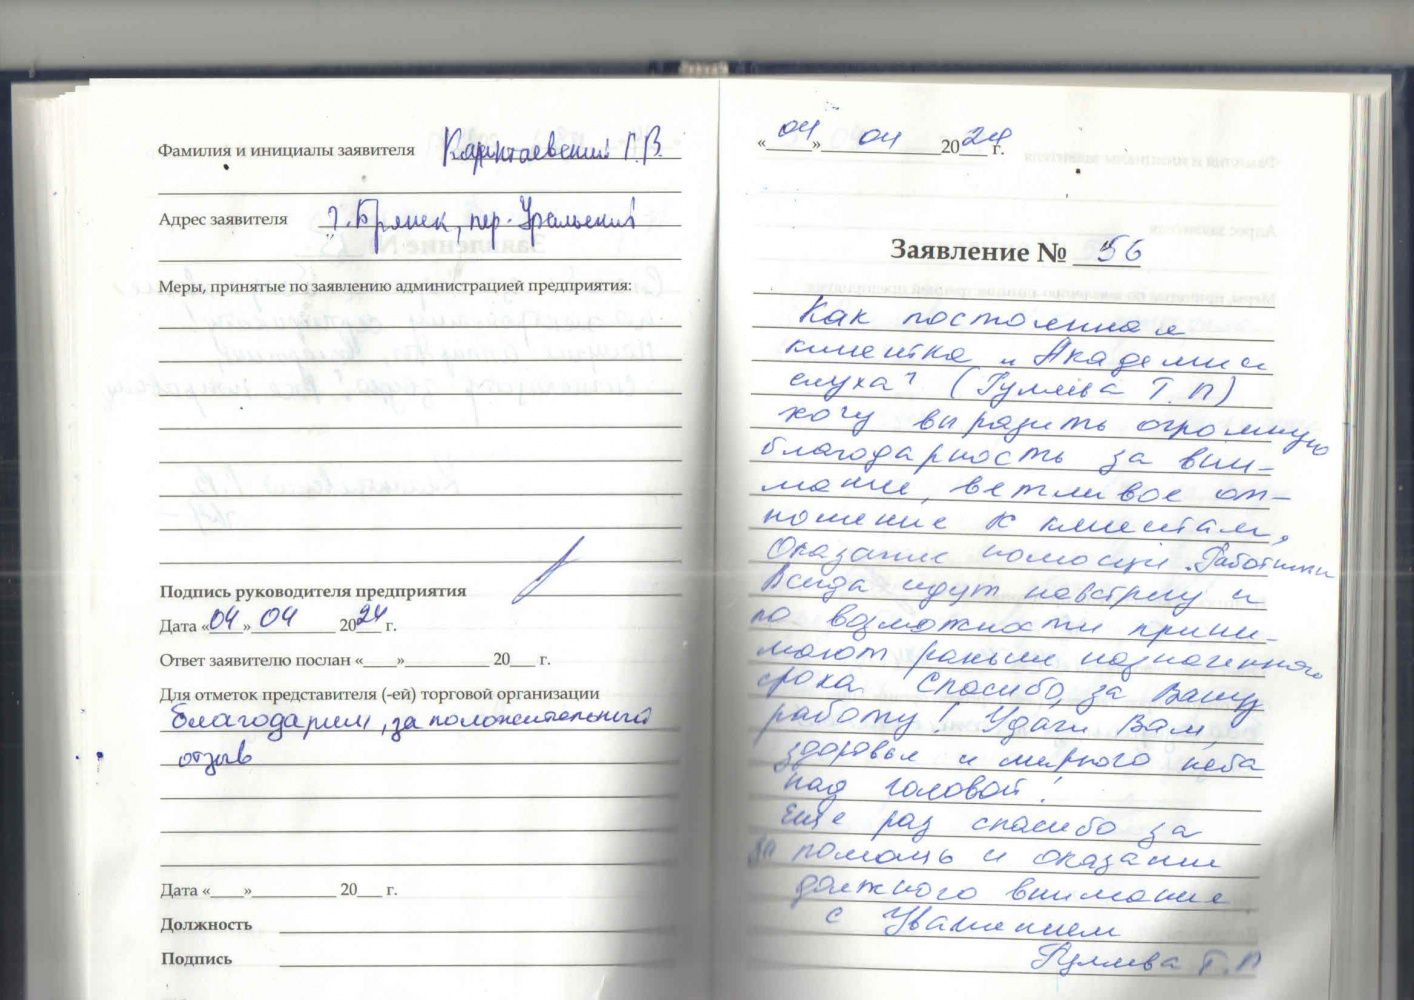 Фамилия и инициалы заявителя Г.В.
Адрес заявителя г. Брянск, пер. Уральский
Меры, принятые по заявлению администрацией предприятия:
Подпись руководителя предприятия
Дата «04» 04 2024 г.
Ответ заявителю послан «___» 20__ г.
Для отметок представителя (-ей) торговой организации
Благодарим, за положительный
отзыв
Дата «___» 20__ г.
Должность
Подпись
«04» 04 2024 г.
Заявление № 56
Как постоянная
клиентка "Академии
слуха" (Гуляева Т.П)
хочу выразить огромную
благодарность за вни-
мание, вежливое от-
ношение к клиентам,
Оказание помощи. Работники
Всегда идут навстречу и
по возможности прини-
мают раньше назначенного
срока. Спасибо, за Вашу
работу! Удачи Вам,
здоровья и мирного неба
над головой!
Еще раз спасибо за
за помощь и оказание
должного внимание
с Уважением
Гуляева Т.П